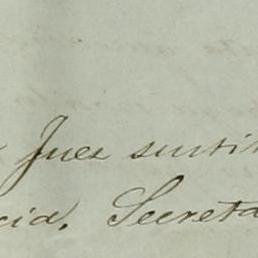 Juez sustit
cia. Secreta